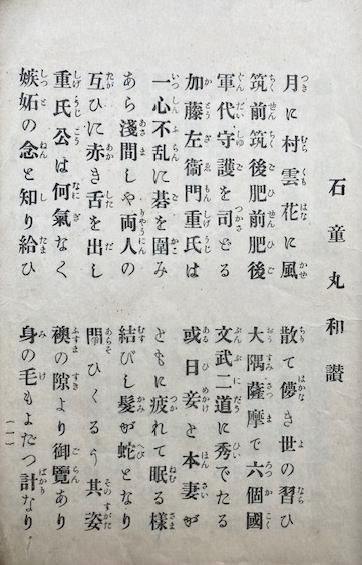 石童丸和讃
月に村雲花に風　散て儚き世の習ひ
筑前筑後肥前肥後　大隅薩摩で六個國
軍代守護を司どる　文武二道に秀でたる
加藤左衞門重氏は　或日妾と本妻が
一心不乱に碁を圍み　ともに疲れて眠る様
あら淺間しや両人の　結びし髮が蛇となり
互ひに赤き舌を出し　鬪ひくるう其姿
重氏公は何氣なく　襖の隙より御覽あり
嫉妬の念と知り給ひ　身の毛もよだつ計なり
(一)